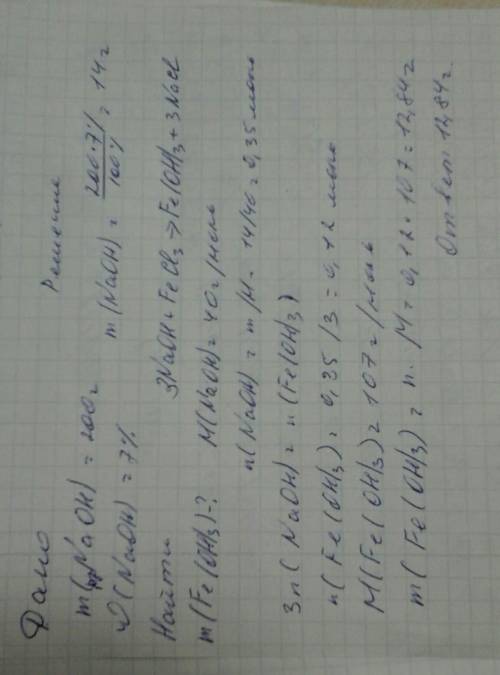 Дано
m(р-ра NaOH) = 200г
ω(NaOH) = 7%
Найти
m(Fe(OH)3)-?
Решение
m(NaOH) = 200·7%/100% = 14г
3NaOH + FeCl3 → Fe(OH)3 + 3NaCl
M(NaOH) = 40г/моль
n(NaOH) = m/M = 14/40 = 0,35моль
3n(NaOH) = n(Fe(OH)3)
n(Fe(OH)3) = 0,35/3 = 0,12 моль
M(Fe(OH)3) = 107г/моль
m(Fe(OH)3) = n·M = 0,12·107 = 12,84г
Ответ: 12,84г.